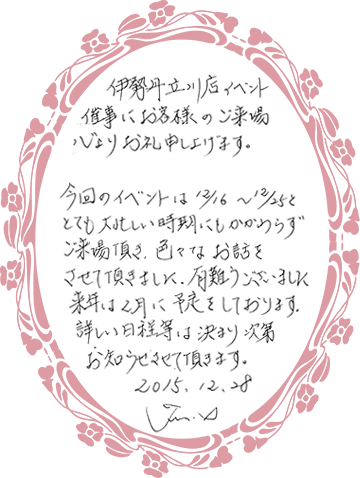 伊勢丹立川店イベント
催事にお客様のご来場
心よりお礼申し上げます。
今回のイベントは12/16～12/25と
とても大忙しい時期にもかかわらず
ご来場頂き、色々なお話を
させて頂きました。有難うございました
来年は2月に予定をしております。
詳しい日程等は決まり次第
お知らせさせて頂きます。
2015.12.28